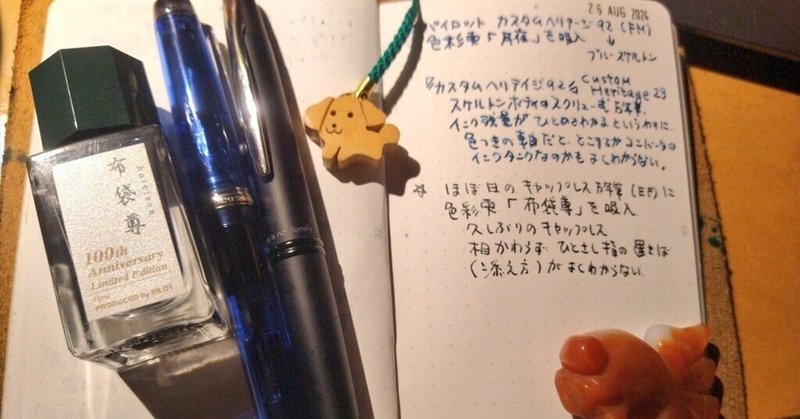 布袋尊
hotei-son
100th
Anniversary
Limited Edition
PRODUCED by PILOT
not lonely
26 AUG 2024
パイロット カスタムヘリテージ92 (FM)
色彩雫「月夜」を吸入
↓
ブルースケルトン
カスタムヘリテイジ92 Custom
Heritage
スケルトンボディのスクリュー式
インク残量が
色つきの軸だと、どこまでがコンバータの
インクタンクなのかもよくわからない。
☆ ほぼ日のキャップレス (EF)に
色彩雫「布袋尊」を吸入
久しぶりのキャップレス
相かわらず、ひとさし指の置きば
(添え方)がよくわからない